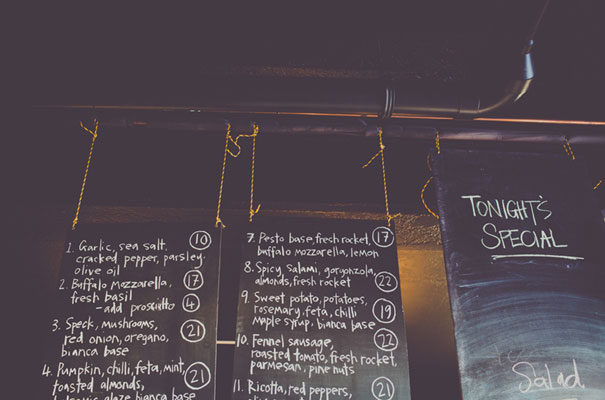 1. Garlic, sea salt, 10
cracked, pepper, parsley
olive oil
2. Buffalo mozzarella, 17
fresh basil
-add prosciutto 4
3. Speck, mushrooms, 21
red onion, oregano,
bianca base
4. Pumpkin, chilli, feta, mint, 21
toasted almonds,
glaze bianca base
7. Pesto base, fresh rocket, 17
buffalo mozzarella, lemon
8. Spicy, salami, gorgonzola, 22
almonds, fresh rocket
9. Sweet potato, potatoes, 19
rosemary, feta, chilli
maple syrup, bianca base
10. Fennel sausage, 22
roasted tomato, fresh rocket,
parmesan, pine nuts
11. Ricotta, red peppers, 21
TONIGHT'S
SPECIAL
Salad